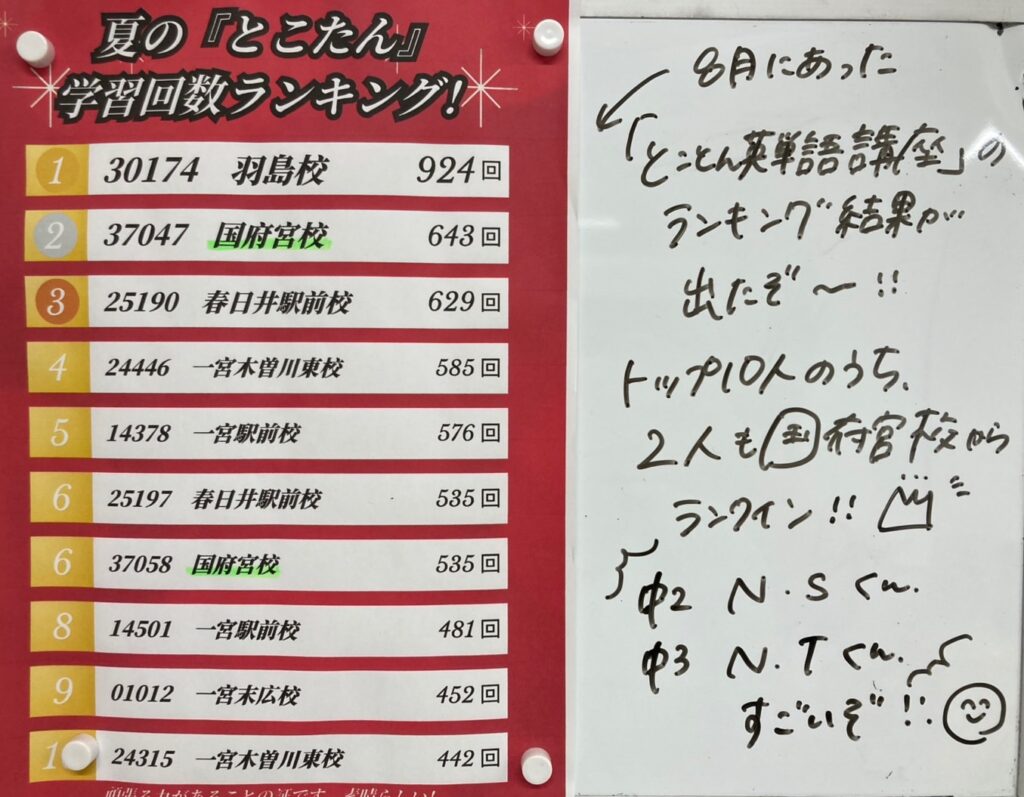 夏の『とこたん』
学習回数ランキング!
1 30174 羽島校 924回
2 37047 国府宮校 643回
3 25190 春日井駅前校 629回
4 24446 一宮木曽川東校 585回
5 14378 一宮駅前校 576回
6 25197 春日井駅前校 535回
6 37058 国府宮校 535回
8 14501 一宮駅前校 481回
9 01012 一宮末広校 452回
1 24315 一宮木曽川東校 442回
頑張る力があることの証です。素晴らしい!
8月にあった
「とことん英単語講座」の
ランキング結果が
出たぞ〜!!
トップ10人のうち、
2人も国府宮校から
ランクイン!!
中2 N.Sくん.
中3 N.Tくん.
すごいぞ!!